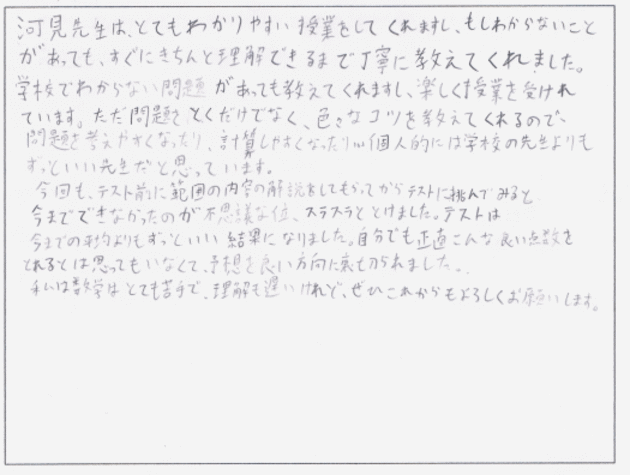 河見先生は、とてもわかりやすい授業をしてくれますし、もしわからないこと
があっても、すぐにきちんと理解できるまで丁寧に教えてくれました。
学校でわからない問題があっても教えてくれますし、楽しく授業を受けれ
ています。ただ問題をとくだけでなく、色々なコツを教えてくれるので、
問題を考えやすくなったり、計算しやすくなったり…個人的には学校の先生よりも
ずっといい先生だと思っています。
今回も、テスト前に範囲の内容の解説をしてもらってからテストに挑んでみると
今までできなかったのが不思議な位、スラスラととけました。テストは
今までの平均よりもずっといい結果になりました。自分でも正直こんな良い点数を
とれるとは思ってもいなくて、予想を良い方向に裏切られました。
私は数学はとても苦手で、理解も遅いけれど、ぜひこれからもよろしくお願いします。